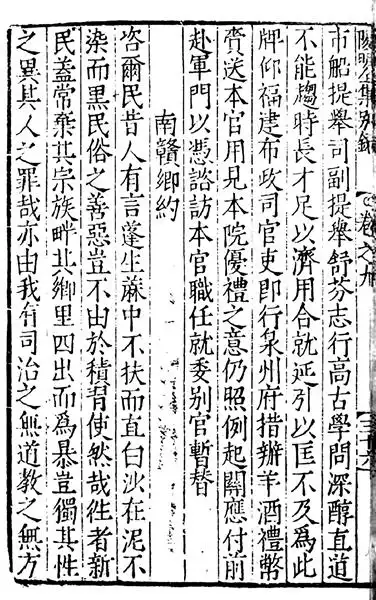 陽明全集別錄 卷之九 三十六
市舶提舉司副提舉舒芬志行高古學問深醇直道
不能趨時長才足以濟用合就延引以匡不及爲此
牌仰福建布政司官吏即行泉州府措辦羊酒禮幣
賫送本官用見本院優禮之意仍照例起關應付前
赴軍門以憑諮訪本官職任就委別官暫替
南贛鄉約
咨爾民昔人有言蓬生蔴中不扶而直白沙在泥不
染而黑民俗之善惡豈不由於積習使然哉徃者新
民蓋常棄其宗族畔其鄉里四出而爲暴豈獨其性
之異其人之罪哉亦由我有司治之無道教之無方